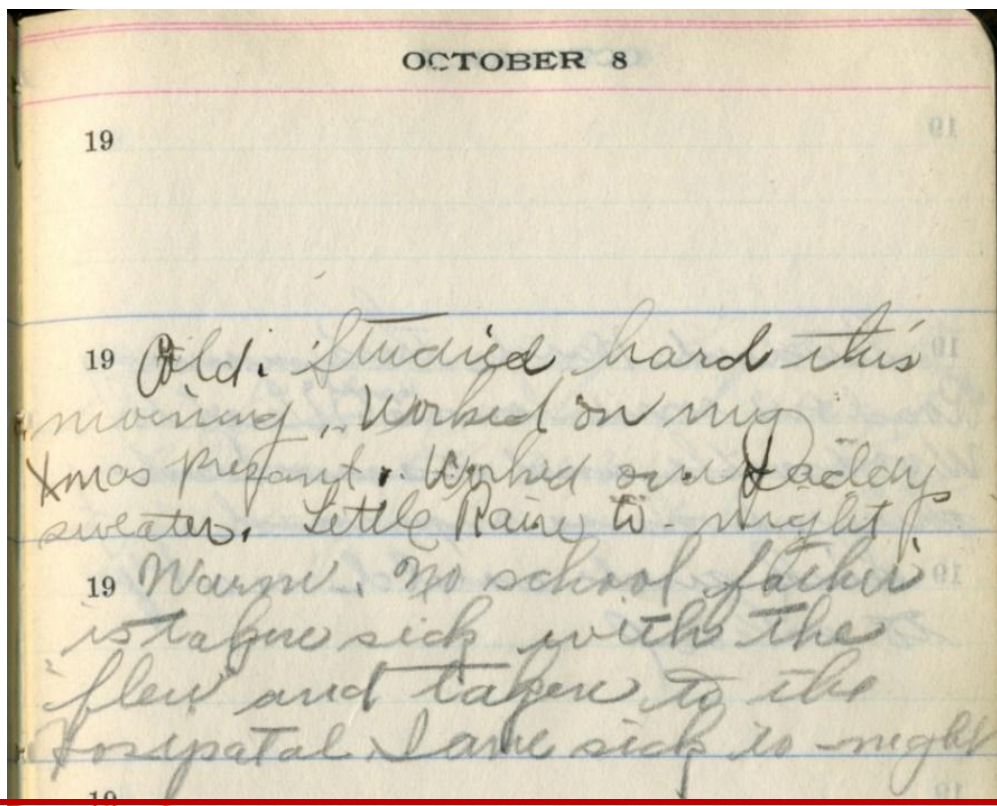 OCTOBER 8
19
19 Cold. Studied hard this
morning. Worked on my
Xmas Present. Worked on Daddy
sweater. Little Rain to-night
19 Warm. No school father
is taken sick with the
flew and taken to the
Hosipatal I am sick to-night
19